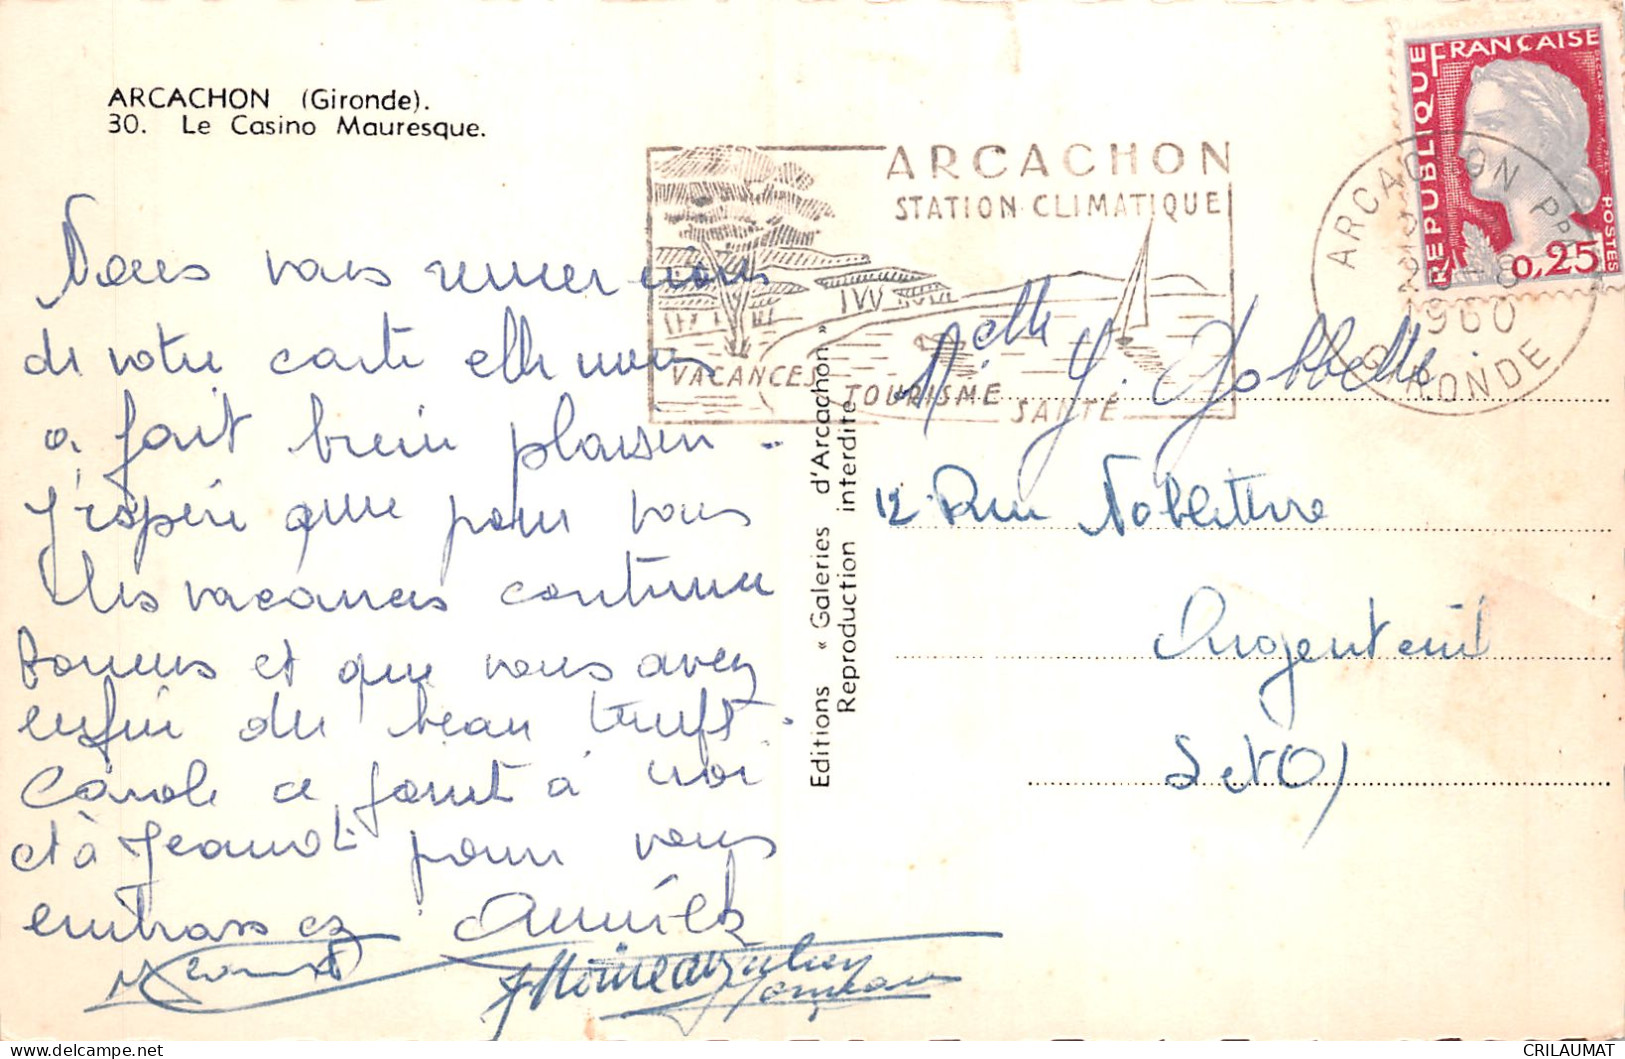 ARCACHON (Gironde).
30. Le Casino Mauresque.
ARCACHON
STATION CLIMATIQUE
VACANCES TOURISME SANTÉ
ARCACHON PPAL
1960
GIRONDE
RÉPUBLIQUE FRANÇAISE
POSTES
0,25
Nous vous remercions
de votre carte elle nous
a fait bien plaisir.
J'espère que pour vous
les vacances continue
bonnes et que vous avez
enfin du beau temps.
Carole ce joint à moi
et à Jeannot pour vous
embrassez
Editions « Galeries d'Arcachon »
Reproduction interdite
Melle Y. Gobbelle
12 Rue Noblet
Argenteuil
S et O)
CRILAUMAT